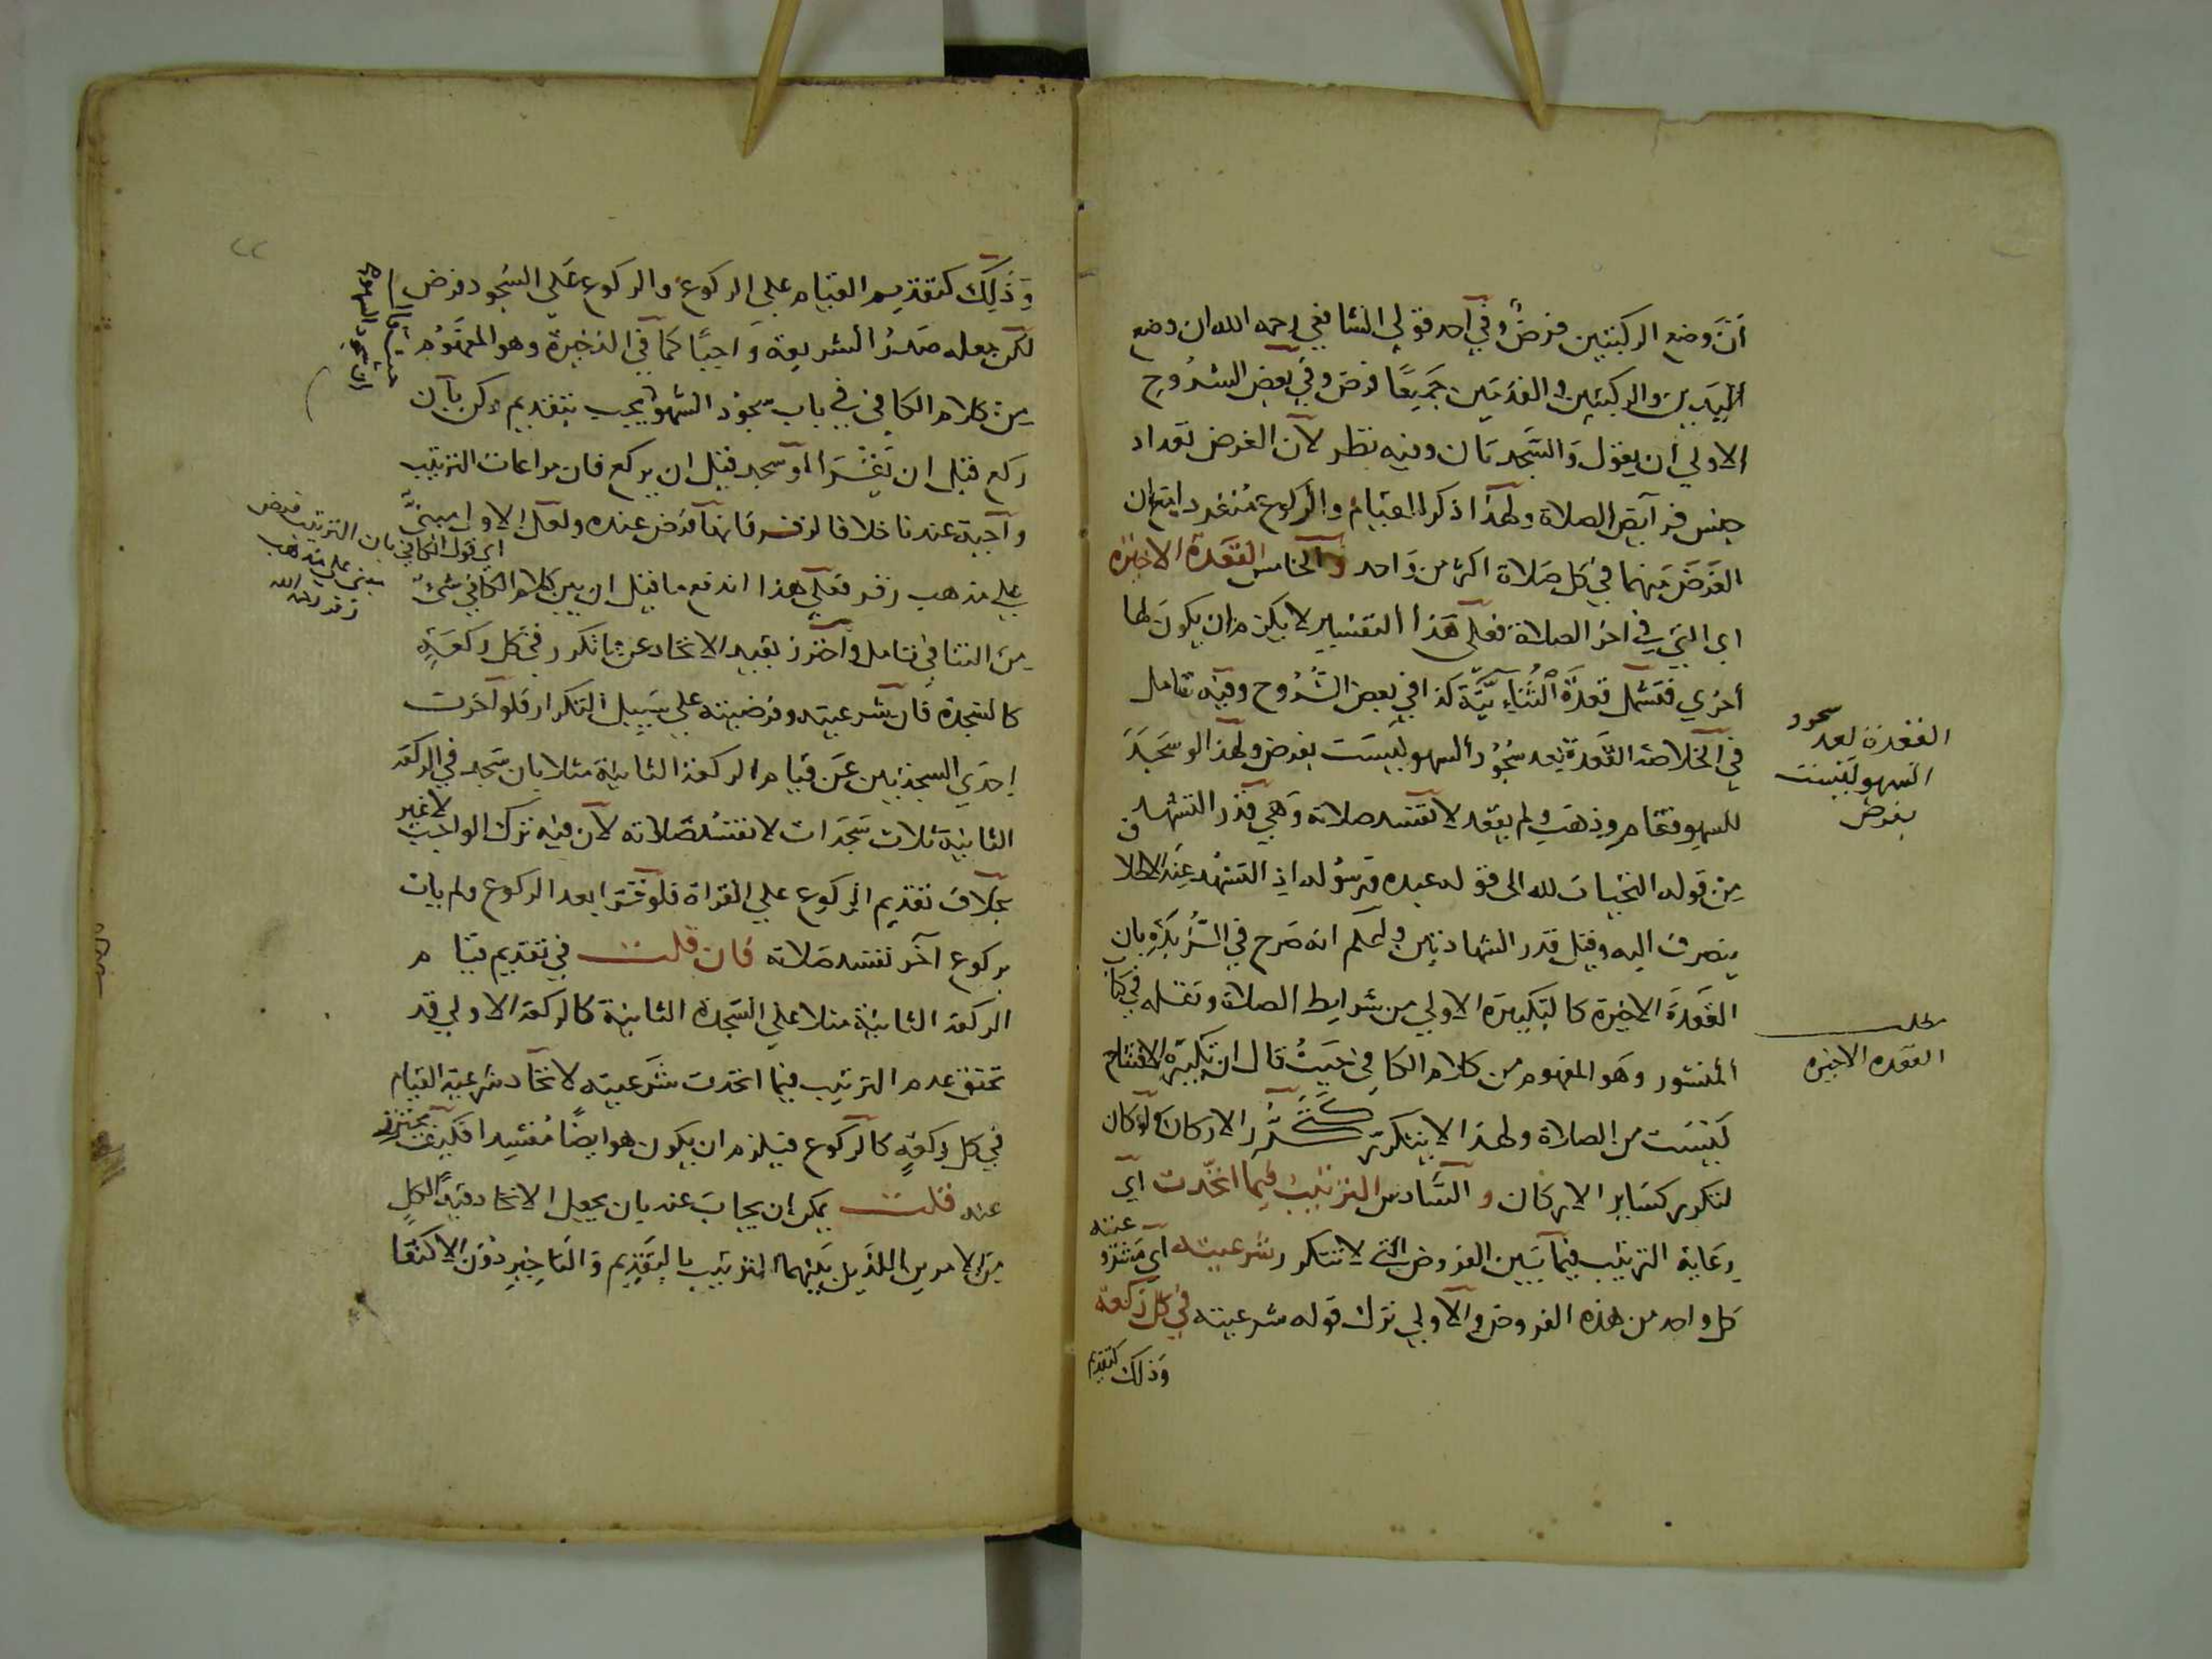 أنّ وضع الركبتين فرض وفي أحد قولي الشافعي رحمه الله ان وضع
اليدين والركبتين والقدمين جميعًا فرض وفي بعض الشروح
الاولي أن يقول والسجدتان وفيه نظر لأن الغرض تعداد
جنس فرآيض الصلاة ولهذا ذكر القيام والركوع منفردا مع ان
الفرض منهما في كل صلاة اكثر من واحد والخامس القعدة الاخيرة
اي التي في اخر الصلاة فعلى هذا التفسير لا يلزم ان يكون لها
أخري فتشمل قعدة الثنائيّة كذا في بعض الشروح وفيه تامل
في الخلاصة القعدة بعد سجود السهو ليست بفرض ولهذا لو سجد
للسهو فقام وذهب ولم يقعد لا تفسد صلاته وهي قدر التشهد
من قوله التحيات لله الى قوله عبده ورسوله اذ التشهد عند الاطلاق
ينصرف اليه وقيل قدر الشهادتين وليعلم انه صرح في بان
القعدة الاخيرة كالتكبيرة الاولي من شرايط الصلاة ونقله في كتاب
المنشور وهو المفهوم من كلام الكافي حيث قال ان تكبيرة الافتتاح
ليست من الصلاة ولهذا لا يتكرر كتكرر الاركان ولو كان
لتكرر كساير الاركان والسادس الترتيب فيما اتحدت آي
رعاية الترتيب فيما بين الفروض التي لا تتكرر شرعيته آي مشروعيته
كل واحد من هذه الفروض والأولي ترك قوله شرعيته في كل ركعة
وذلك كتقديم
القعدة بعد سجود
السهو ليست
بفرض
مطلب
القعده الاخيره
وذلك كتقديم القيام علي الركوع والركوع علي السجود فرض
لكن جعله صدر الشريعة واجبًا كما في الذخيرة وهو المفهوم
من كلام الكافي في باب سجود السهو يجب بتقديم ركن بأن
ركع قبل ان يقرأ أو سجد قبل ان يركع فان مراعات الترتيب
وآجبة عندنا خلافا لزفر فانها فرض عنده ولعل الاول مبنيٌّ
علي مذهب زفر فعلي هذا اندفع ما قيل ان بين كلام الكافي شيء
من التنافي تامل واحترز بقيد الاتحاد عن ما تكرر في كل ركعة
كالسجدة فان شرعيته وفرضيته علي سبيل التكرار فلو آخرت
إحدي السجدتين عن قيام الركعة الثانية مثلا بان سجد في الركعة
الثانية ثلاث سجدات لا تفسد صلاته لأن فيه ترك الواجب لا غير
بخلاف تقديم الركوع علي القراة فلو قرا بعد الركوع ولم يات
بركوع آخر تفسد صلاته فان قلت في تقديم قيام
الركعة الثانية مثلا علي السجدة الثانية كالركعة الاولي قد
تحقق عدم الترتيب فيما اتحدت شرعيته لاتحاد شرعية القيام
في كل ركعةٍ كالركوع فيلزم ان يكون هو ايضًا مفسدا فكيف يحترز
عنه قلت يمكن ان يجاب عنه بان يجعل الاتحاد قيدًا لكلٍ
من الامرين اللذين بينهما الترتيب بالتقديم والتاخير دون الاكتفا
حيث قال
ان سجود السهو
اي قول الكافي بان الترتيب فرض
مبني علي مذهب
زفر رحمه الله